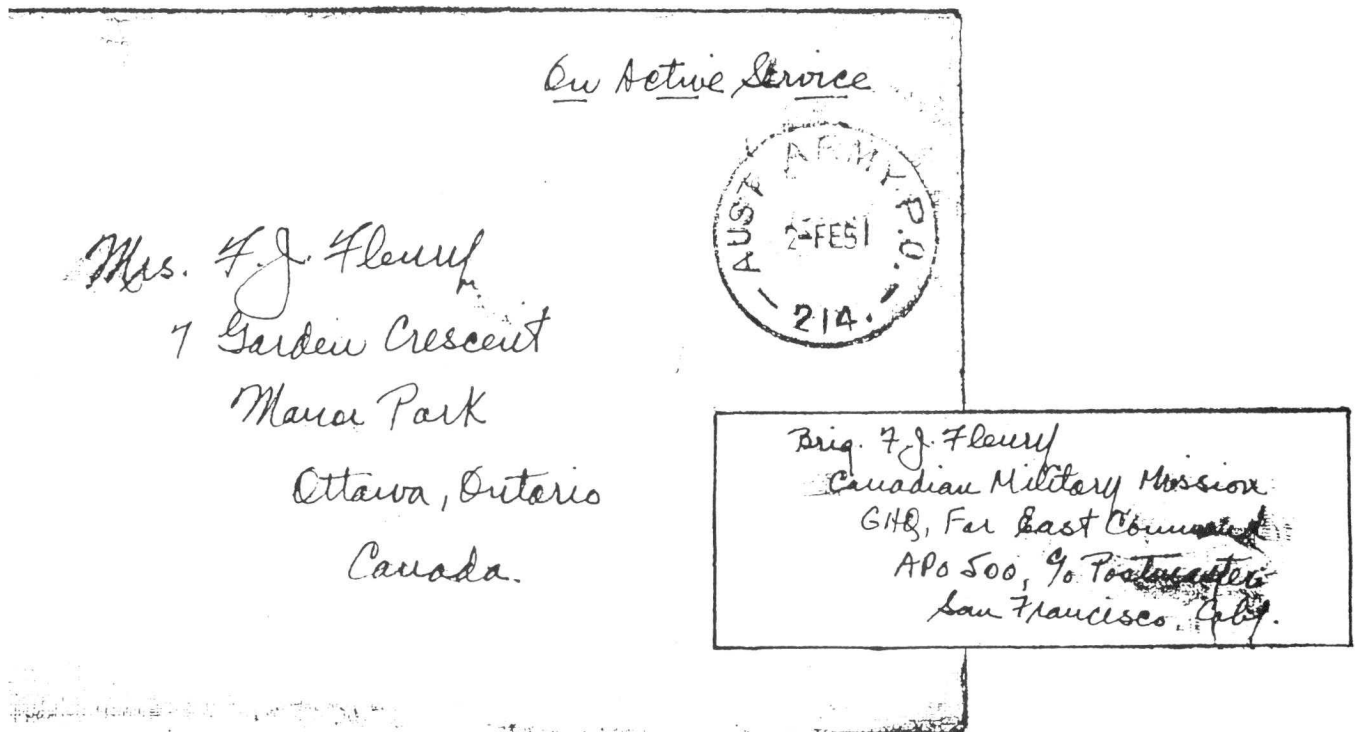 On Active Service
AUST ARMY P.O.
2 FE 51
214.
Mrs. F. J. Fleury
7 Garden Crescent
Manor Park
Ottawa, Ontario
Canada.
Brig. F. J. Fleury
Canadian Military Mission
GHQ, Far East Command
APO 500, c/o Postmaster
San Francisco, Calif.